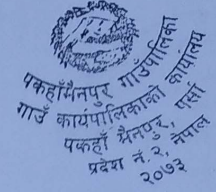 पकहाँमैनपुर गाउँपालिका
गाउँ कार्यपालिकाको कार्यालय
पकहाँ मैनपुर, पर्सा
प्रदेश नं. २, नेपाल
२०७३